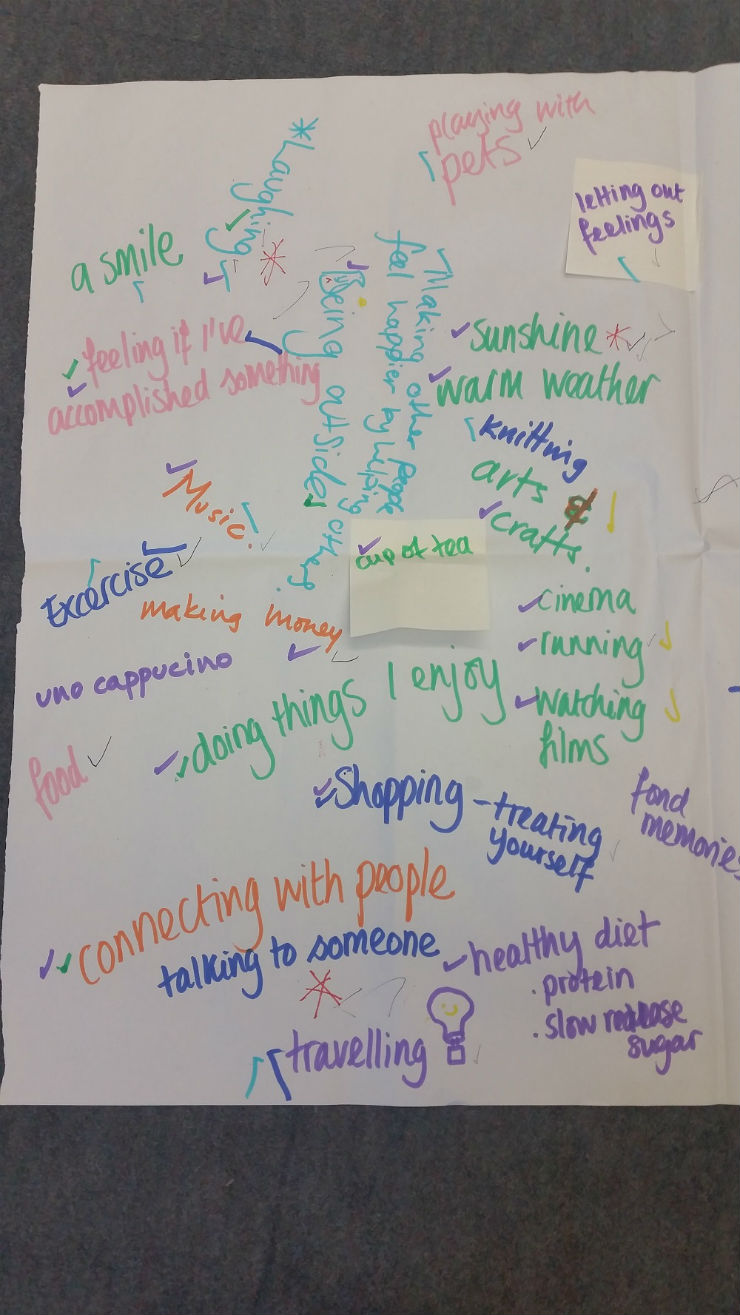 playing with
pets
letting out
feelings
*Laughing
a smile
Making other people
feel happier by helping others.
Being outside
feeling if I've
accomplished something
sunshine
warm weather
knitting
arts &
crafts.
Music!
cup of tea
Excercise
making money
cinema
running
watching
films
uno cappucino
doing things I enjoy
food
Shopping - treating
yourself
fond
memories
connecting with people
talking to someone
healthy diet
. protein
. slow release
sugar
travelling